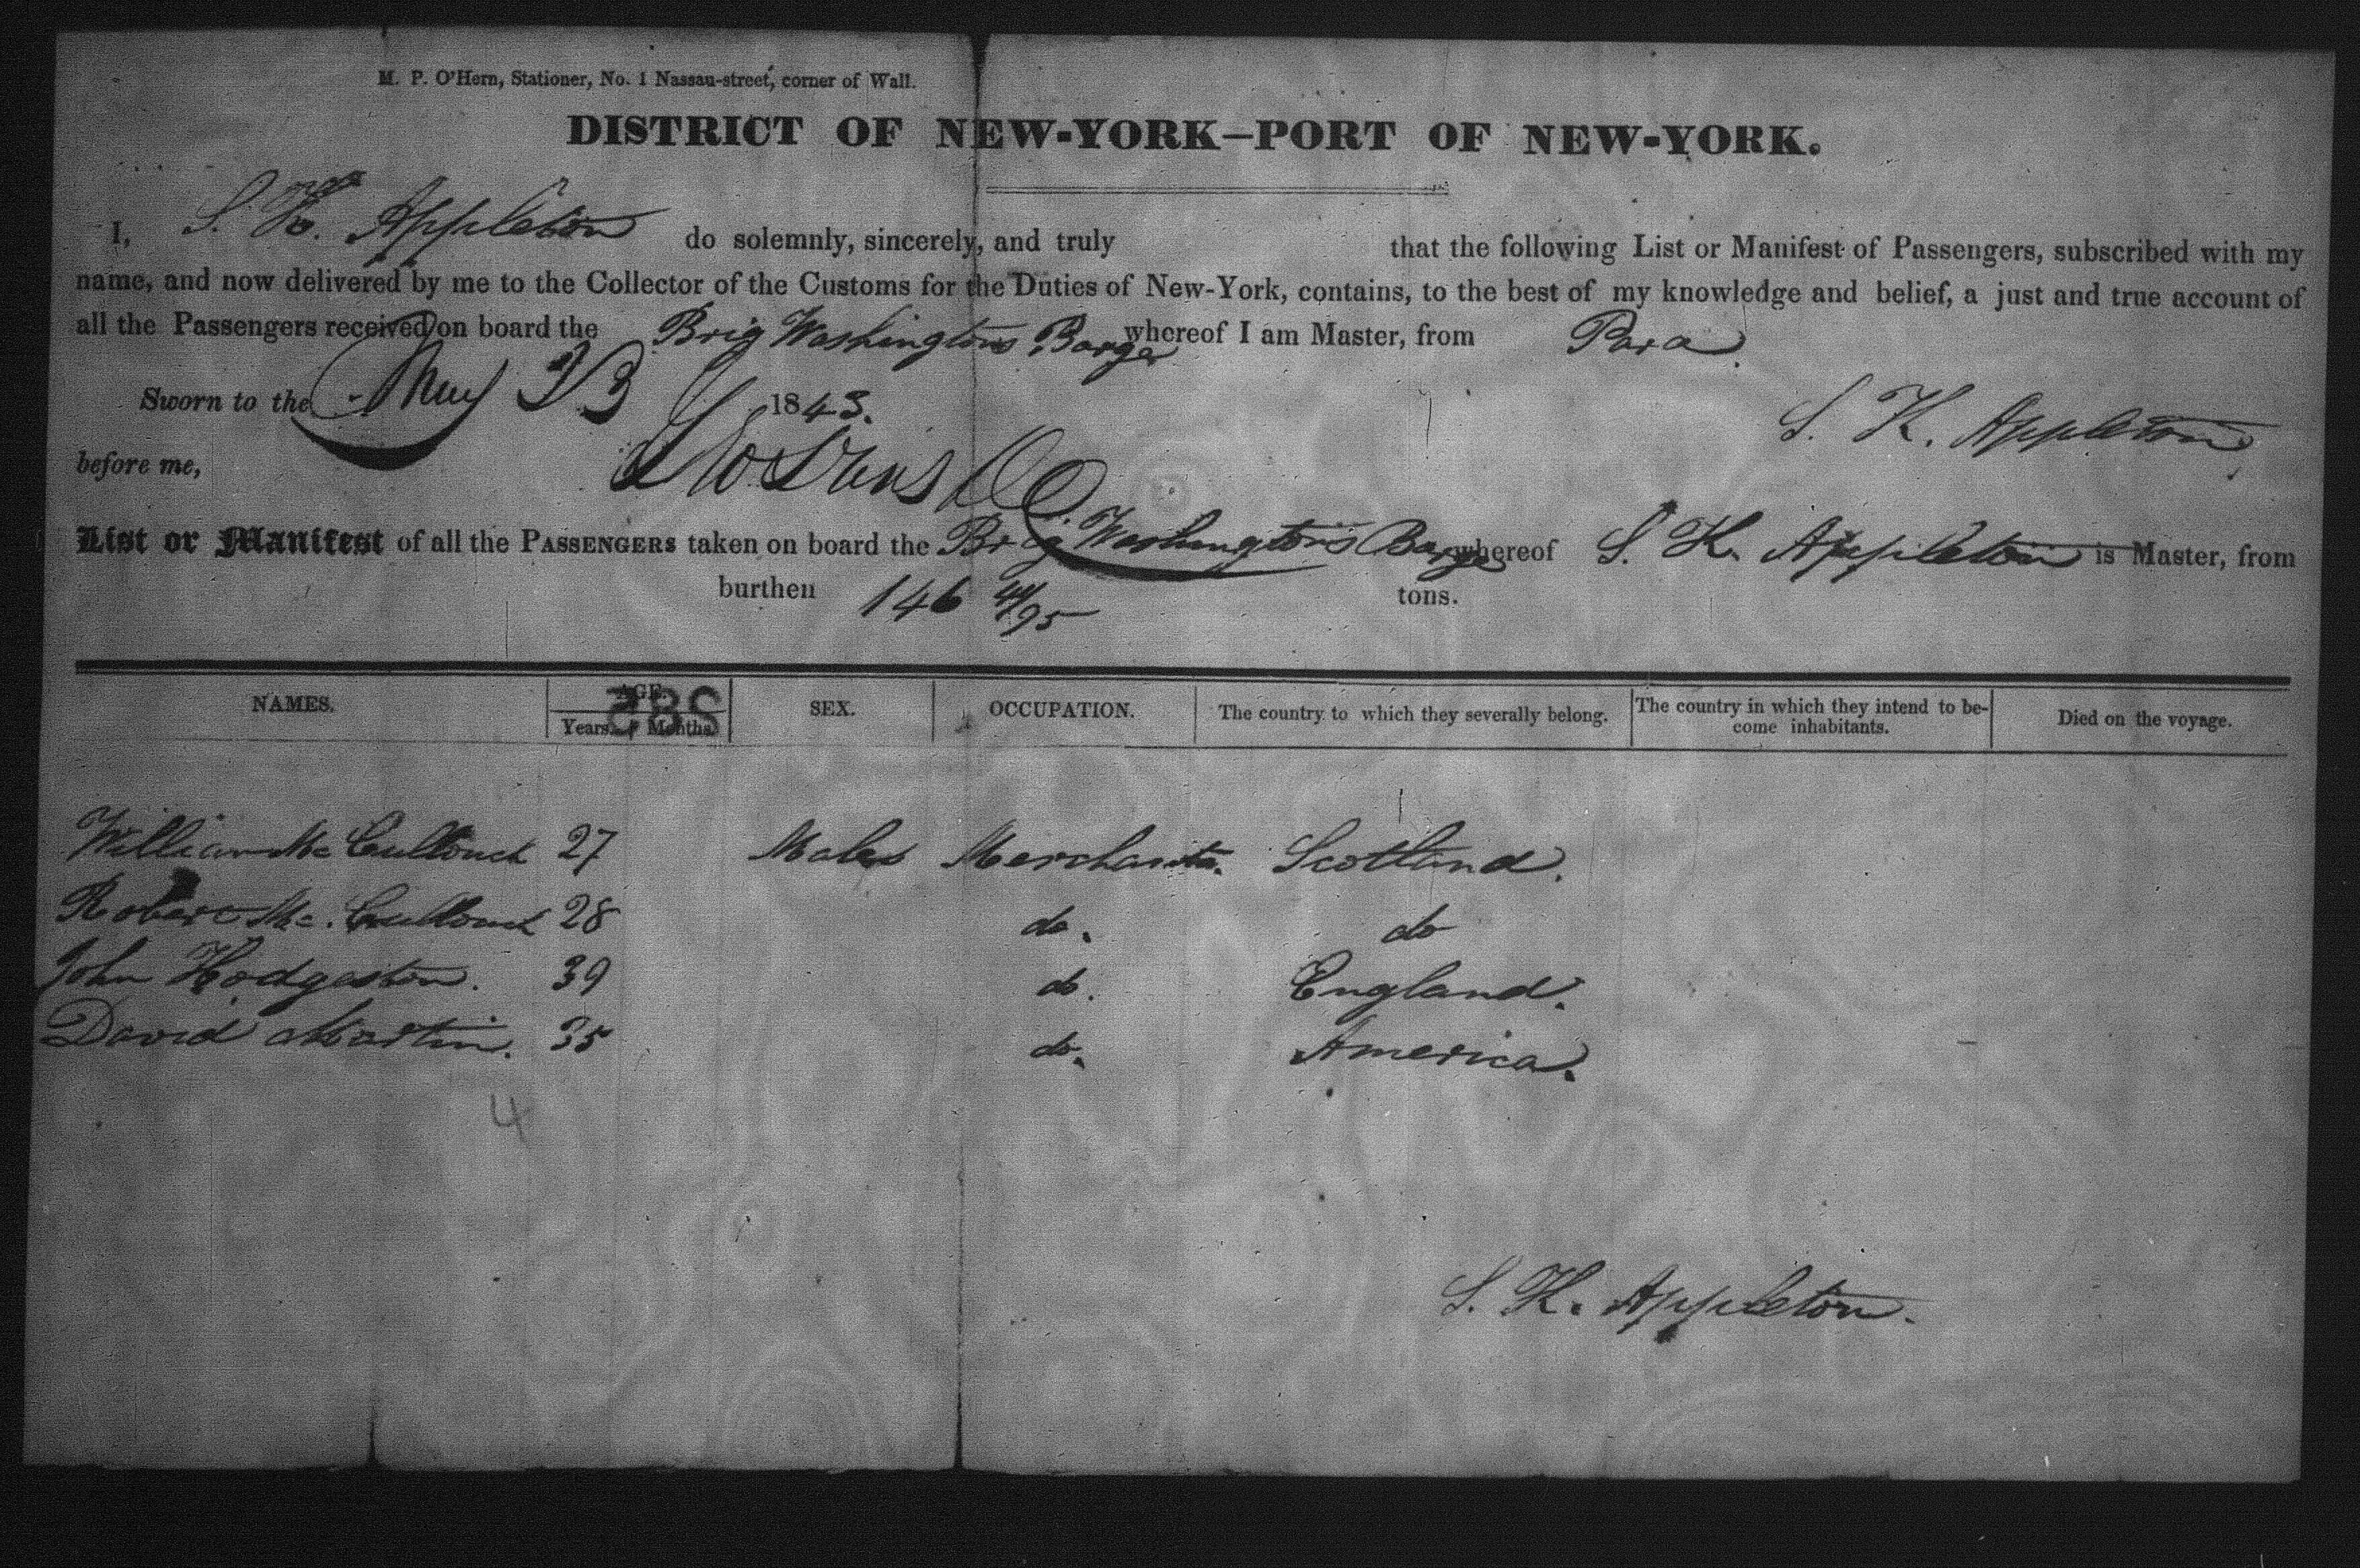 M. P. O'Hern, Stationer, No. 1 Nassau-street, corner of Wall.
DISTRICT OF NEW-YORK—PORT OF NEW-YORK.
I, S. K. Appleton do solemnly, sincerely, and truly that the following List or Manifest of Passengers, subscribed with my
name, and now delivered by me to the Collector of the Customs for the Duties of New-York, contains, to the best of my knowledge and belief, a just and true account of
all the Passengers received on board the Brig Washingtons Barge whereof I am Master, from Para
Sworn to the May 23 1843.
S. K. Appleton
before me,
List or Manifest of all the PASSENGERS taken on board the Brig Washington's Barge whereof S. K. Appleton is Master, from
burthen 146 41/95 tons.
NAMES. AGE. SEX. OCCUPATION. The country to which they severally belong. The country in which they intend to be-
come inhabitants. Died on the voyage.
Years. Months.
285
William Mc Cullouch 27 Males Merchants. Scotland.
Robert Mc. Cullouch 28 do. do
John Hodgeston. 39 do. England.
David Martin. 35 do. America.
4
S. K. Appleton.